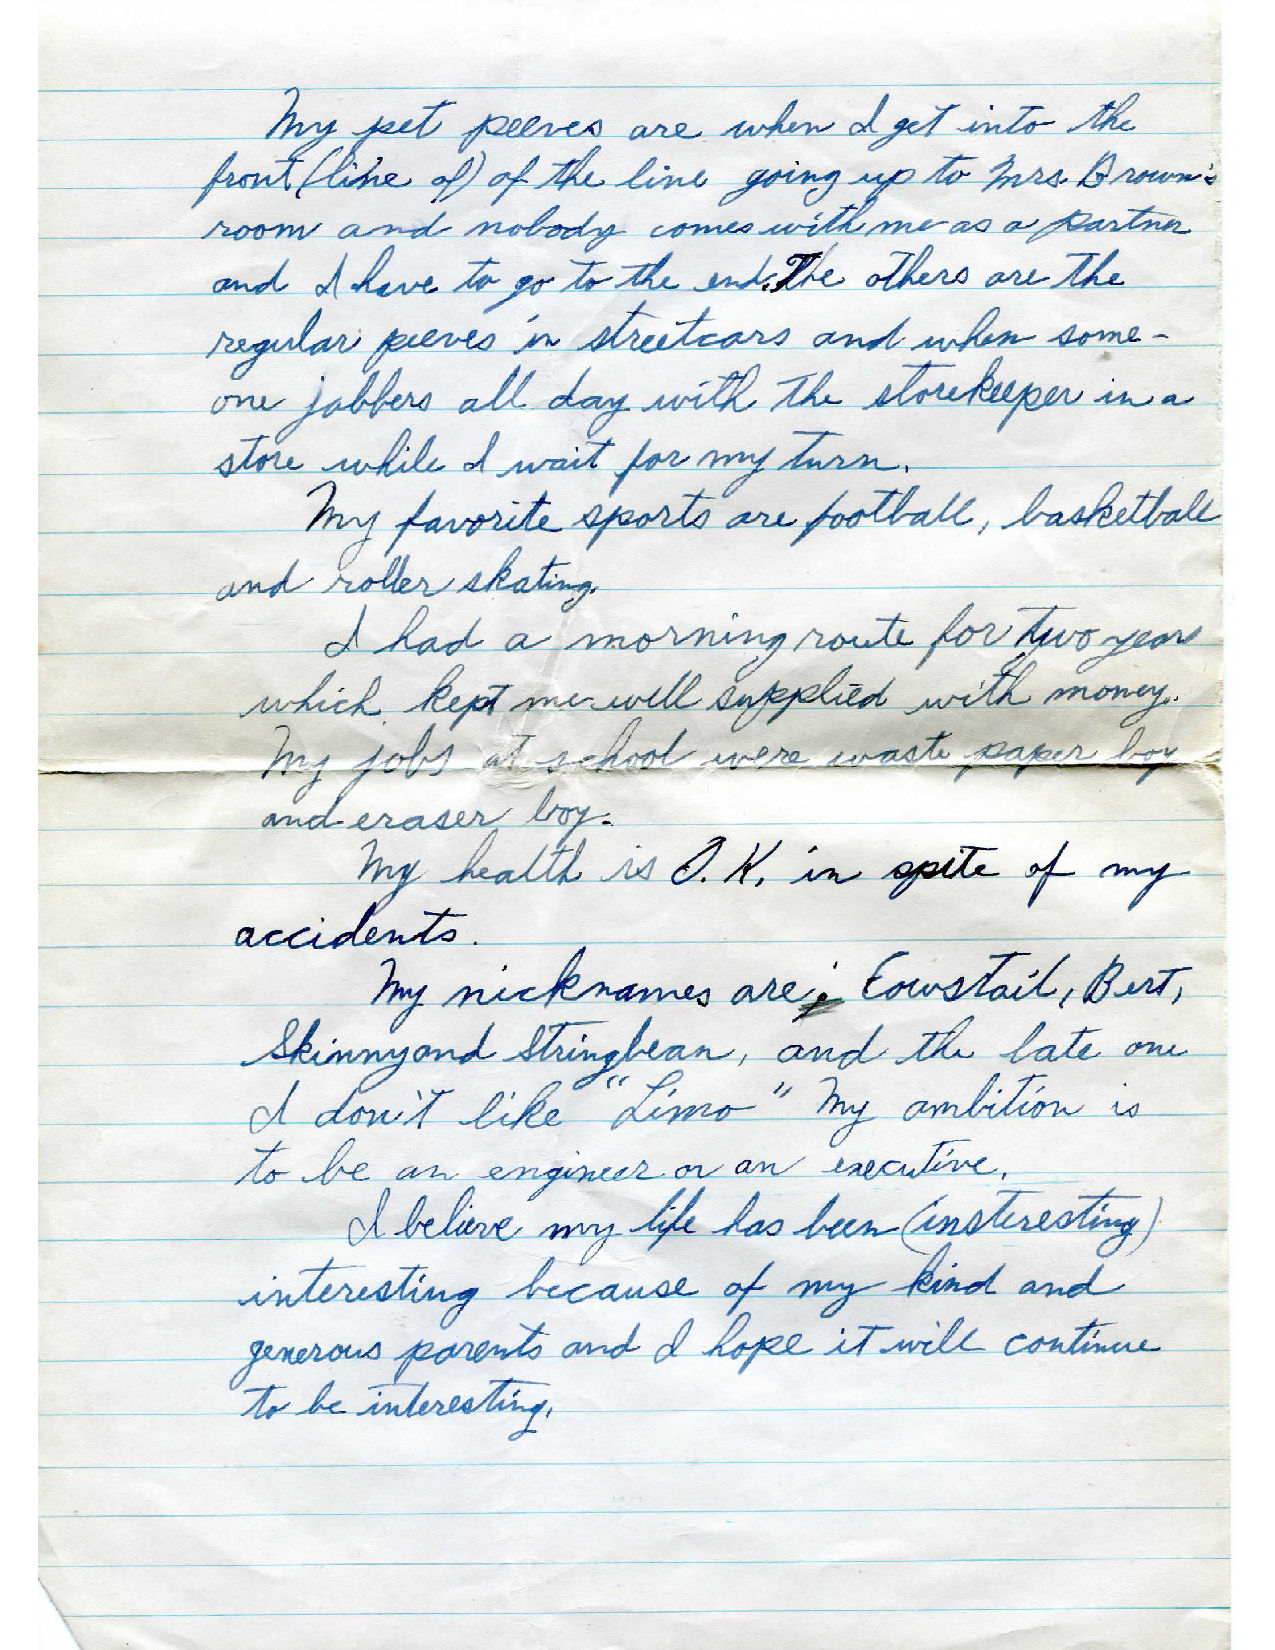 My pet peeves are when I get into the
front (line of) of the line going up to Mrs. Brown's
room and nobody comes with me as a partner
and I have to go to the end. The others are the
regular peeves in streetcars and when some-
one jabbers all day with the storekeeper in a
store while I wait for my turn.
My favorite sports are football, basketball
and roller skating.
I had a morning route for two years
which kept me well supplied with money.
My jobs at school were waste paper boy
and eraser boy.
My health is O.K. in spite of my
accidents.
My nicknames are; Cowstail, Bert,
Skinny and Stringbean, and the late one
I don't like "Limo" My ambition is
to be an engineer or an executive.
I believe my life has been (insteresting)
interesting because of my kind and
generous parents and I hope it will continue
to be interesting.